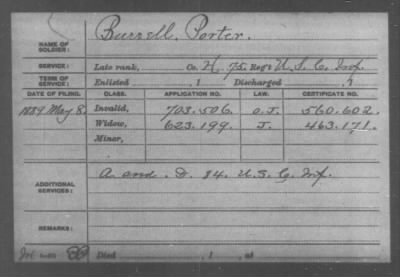 NAME OF SOLDIER: Burrell, Porter.
SERVICE: Late rank, Co. H, 75. Reg't U.S.C. Inf.
TERM OF SERVICE: Enlisted , 1 Discharged , 1
DATE OF FILING. CLASS. APPLICATION NO. LAW. CERTIFICATE NO.
1889 May 8. Invalid, 703.506. O.J. 560.602.
Widow, 623.199. J. 463.171.
Minor,
ADDITIONAL SERVICES: A. and . D. 84. U.S.C. Inf.
REMARKS:
Died , 1 , at